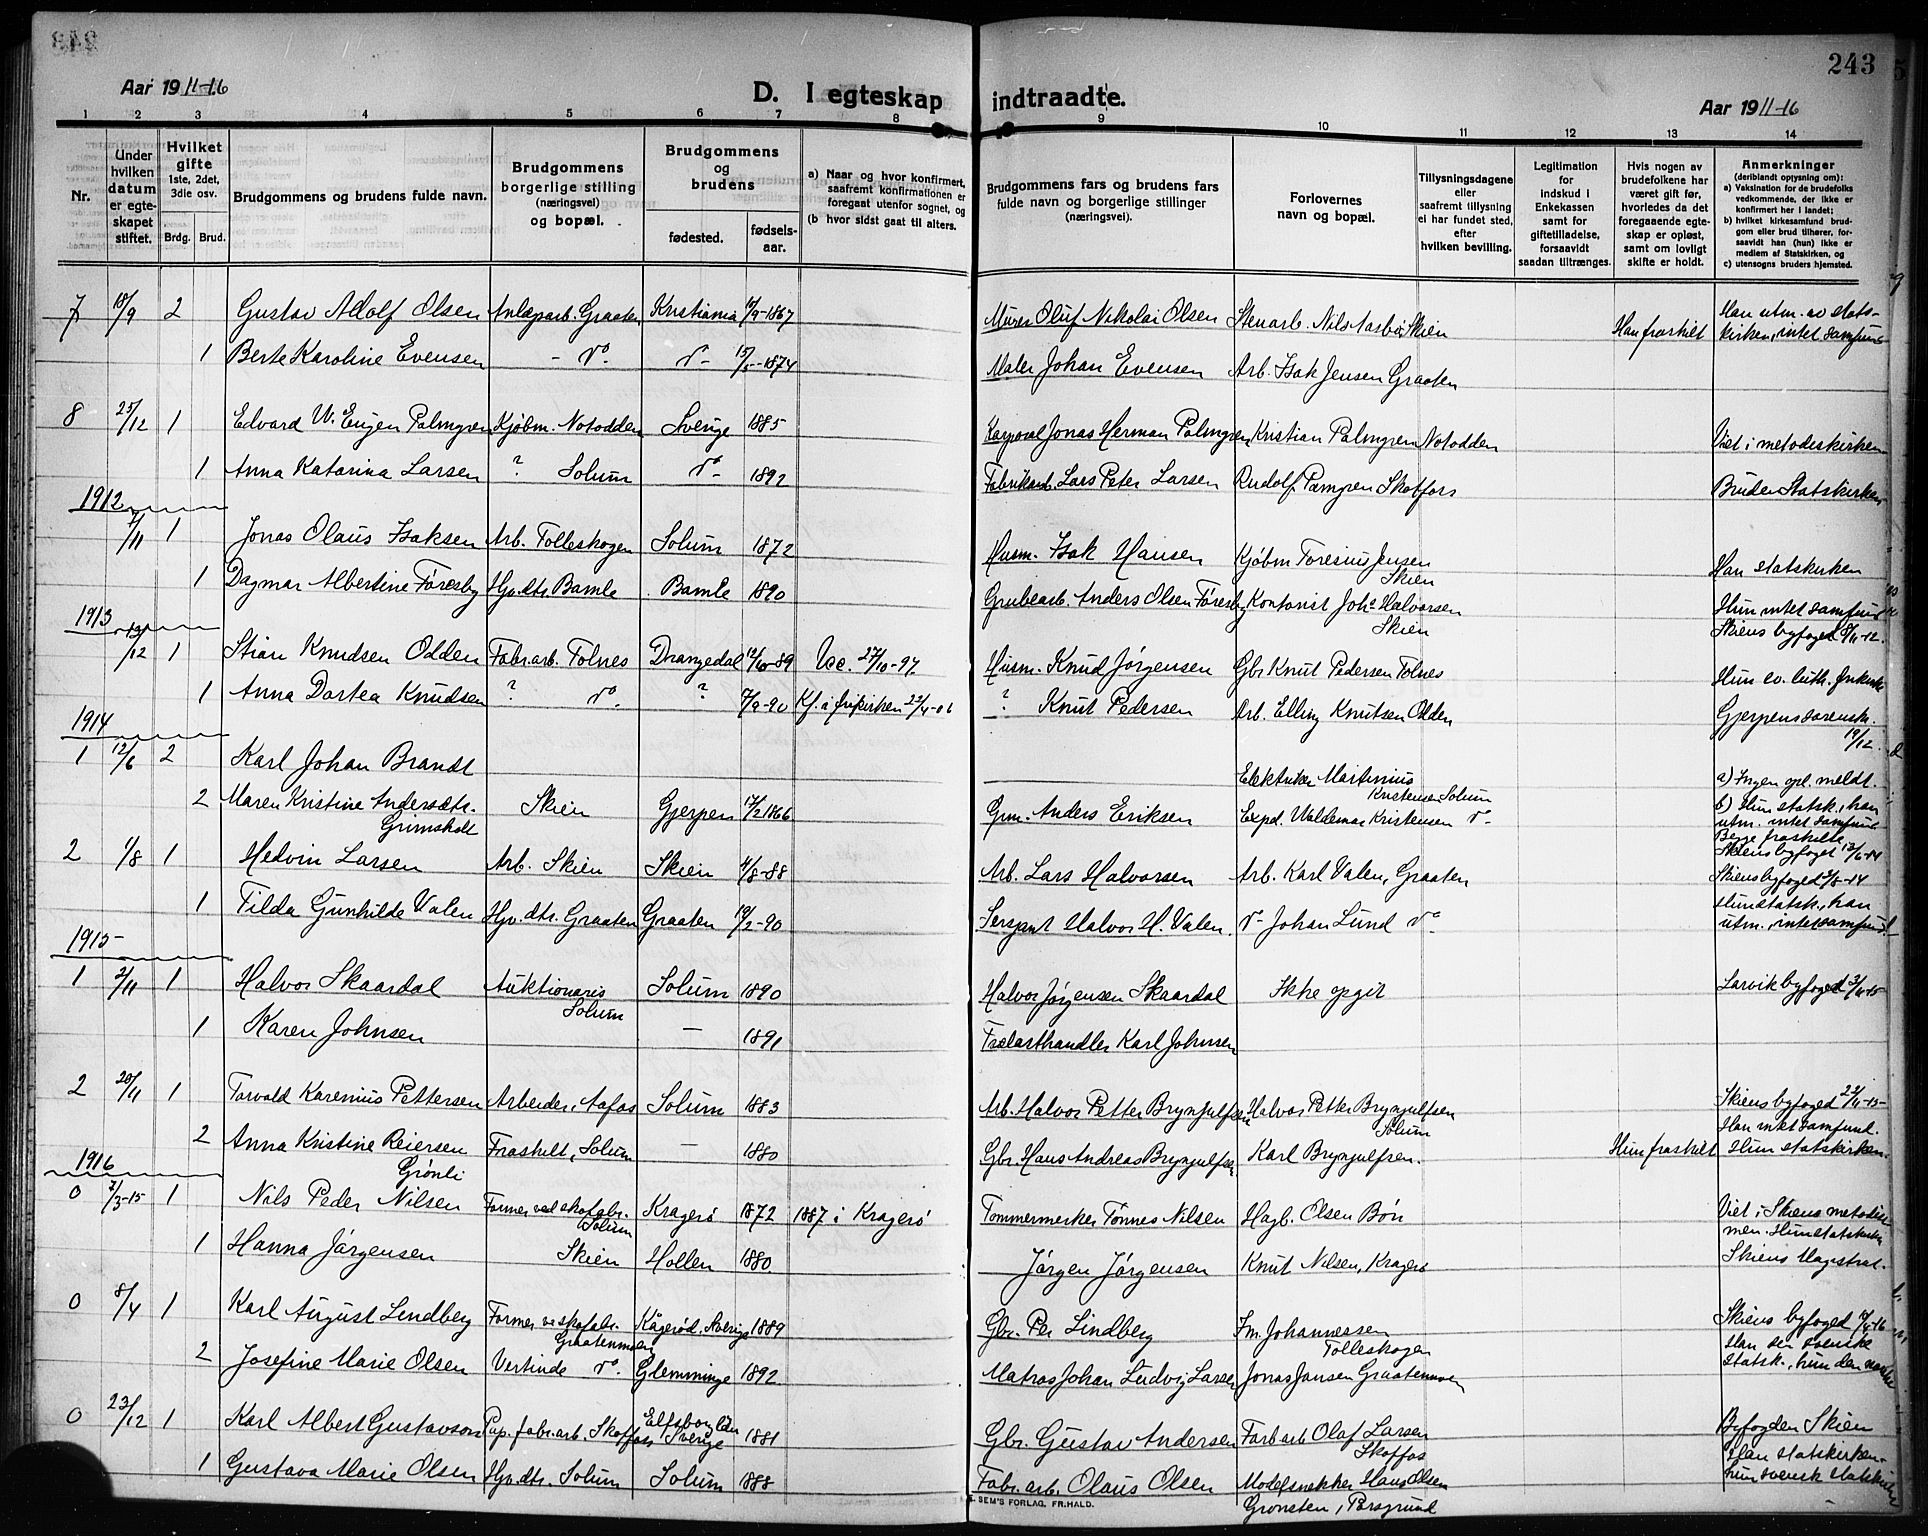 243
Aar 1911-16
D. I egteskap indtraadte.
Aar 1911-16
1 2 3 4 5 6 7 8 9 10 11 12 13 14
Nr.
Under hvilken datum er egteskapet stiftet.
Hvilket gifte 1ste, 2det, 3die osv.
Brdg. Brud.
Brudgommens og brudens fulde navn.
Brudgommens borgerlige stilling (næringsvei) og bopæl.
Brudgommens og brudens
fødested. fødsels-aar.
a) Naar og hvor konfirmert, saafremt konfirmationen er foregaat utenfor sognet, og
(b hvor sidst gaat til alters.
Brudgommens fars og brudens fars fulde navn og borgerlige stillinger (næringsvei).
Forlovernes navn og bopæl.
Tillysningsdagene eller saafremt tillysning ei har fundet sted, efter hvilken bevilling.
Legitimation for indskud i Enkekassen samt for giftetilladelse, forsaavidt saadan tiltrænges.
Hvis nogen av brudefolkene har været gift før, hvorledes da det foregaaende egteskap er opløst, samt om lovligt skifte er holdt.
Anmerkninger (deriblandt optysning om):
a) Vaksination for de brudefolks vedkommende, der ikke er konfirmert her i landet;
b) hvilket kirkesamfund brudgom eller brud tilhører, forsaavidt han (hun) ikke er medlem af Statskirken, og
c) utensogns bruders hjemsted.
7 10/9 2 Gustav Adolf Olsen Anlægsarb. Graaten Kristiania 10/9-1867 Murer Oluf Nikolai Olsen Stenarb. Nils Aarbö Skien Han fraskilt Han utm. av stats-
kirken, intet samfund
1 Berte Karoline Evensen - do - do - 15/5-1874 Maler Johan Evensen Arb. Isak Jensen Graaten
8 25/12 1 Edvard W. Eugen Palmgren Kjøbm. Notodden Sverige 1885 Korporal Jonas Herman Palmgren Kristian Palmgren Notodden Viet i metodeskirken
1 Anna Katarina Larsen ? Solum do - 1892 Fabrikarb. Lars Peter Larsen Rudolf Pamgren Skotfos Bruden Statskirken
1912
7/11 1 Jonas Olaus Isaksen Arb. Tolleskogen Solum 1872 Husm. Isak Hansen Kjøbm Toresius Jensen Skien Han statskirken
1 Dagmar Albertine Føresby Hjv. dtr. Bamle Bamle 1890 Grubearb. Anders Olsen Føresby Kontorist Johs Halvorsen Skien Hun intet samfund
Skiens byfoged 8/11-12.
1913
13/12 1 Stian Knudsen Odden Fabr. arb. Tolnes Drangedal 12/10-89 Vac. 27/10-97. Husm. Knud Jørgensen Gbr Knut Pedersen Tolnes Hun ev. luth. frikirke
1 Anna Dortea Knudsen ? do ? 7/9-90 Kf. i frikirken 22/4-06 ? Knut Pedersen Arb. Elling Knutsen Odden Gjerpens sorensk.
19/12.
1914
1 12/6 2 Karl Johan Brandt Elektriker Martinius Kristensen Solum a) Ingen opl. meldt.
2 Maren Kristine Andersdtr. Grimsholt Skien Gjerpen 17/2 1866 Grm. Anders Eriksen Exped. Waldemar Kristensen do - b) Hun statsk., han
utm. intet samfund
Begge fraskilte
Skiens byfoged 12/6-14
2 1/8 1 Hedvin Larsen Arb. Skien Skien 4/8-88 Arb. Lars Halvorsen Arb. Karl Valen, Graaten Skiens byfoged 1/8-14
1 Tilda Gunhilde Valen Hjv. dtr. Graaten Graaten 19/2-90 Sersjant Halvor H. Valen. do - Johan Lund do Hun statsk., han
utm., intet samfund
1915
1 2/11 1 Halvor Skaardal Auktionaris Solum Solum 1890 Halvor Jørgensen Skaardal Ikke opgit Larvik byfoged 2/11-15
1 Karen Johnsen - 1891 Trælasthandler Karl Johnsen
2 20/11 1 Torvald Karenius Pettersen Arbeider, Aafos Solum 1883 Arb. Halvor Petter Brynjulfsen Halvor Petter Brynjulfsen Solum Skiens byfoged 22/11-15
Han intet samfund.
2 Anna Kristine Reiersen Grønli Fraskilt, Solum - 1880 Gbr. Hans Andreas Brynjulfsen Karl Brynjulfsen. Hun fraskilt Hun statskirken.
1916
0 7/3-15 1 Nils Peder Nilsen Former ved skofabr. Solum Kragerö 1872 1887 i Kragerö Tømmermerker Tønnes Nilsen Hagb. Olsen Bön Viet i Skiens metodist
men. Hun statskirken
1 Hanna Jörgensen Skien Hollen 1880 Jörgen Jörgensen Knut Nilsen, Kragerö Skiens Magistrat.
0 8/4 1 Karl August Lindberg Former ve skofabr. Graatenmoen Kågeröd. Sverige 1889 Gbr. Per Lindberg Fm. Johannessen Tolleskogen Skiens byfoged 10/4-16
Han den svenske
2 Josefine Marie Olsen Vertinde do. Glemminge 1892 Matros Johan Ludvig Larsen Jonas Jansen Graatenmoen statsk., hun den norske
0 23/12 1 Karl Albert Gustavson Pap. fabr. arb. Skotfos Elfsborg län Sverige 1881 Gbr. Gustav Andersen Farb arb Olaf Larsen Skotfos Byfogden Skien
Han statskirken-
1 Gustava Marie Olsen Hjv. dtr. Solum Solum 1888 Fabr. arb. Olaus Olsen Modelsnekker Hans Olsen hun svensk statskirke
Grønsten, Porsgrund
SEM'S FORLAG, FR.HALD.